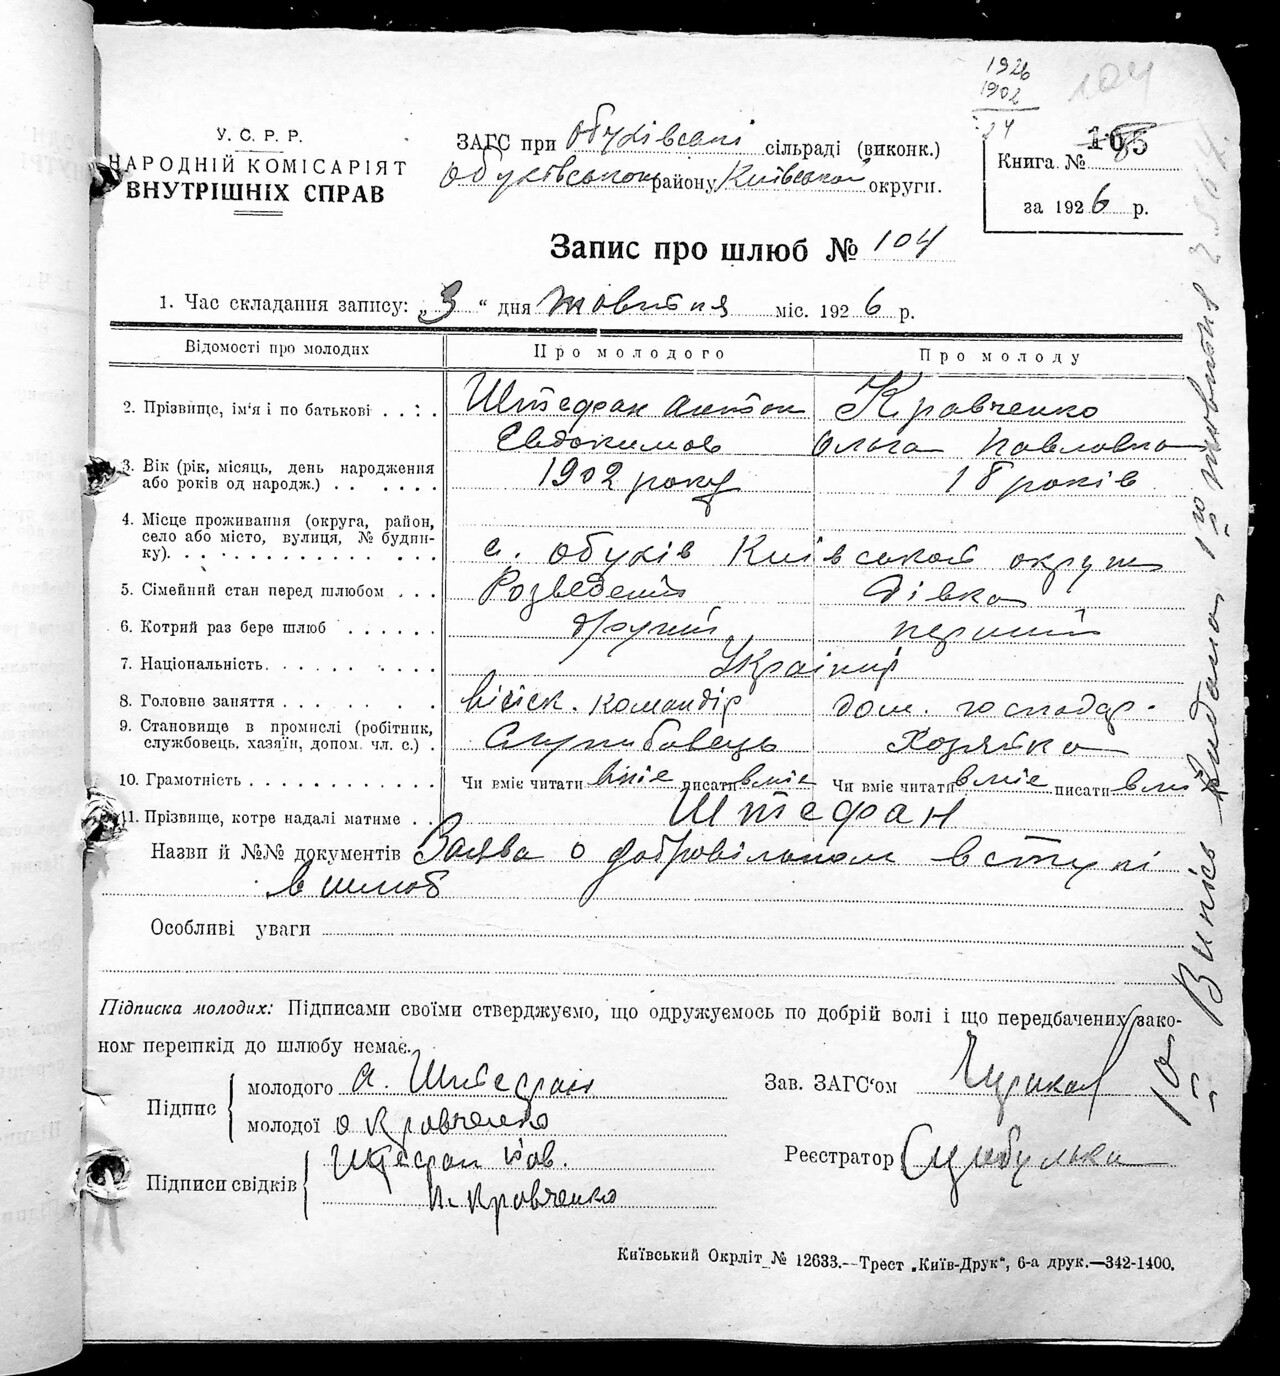 1926
1902
24
104
У. С. Р. Р.
НАРОДНІЙ КОМІСАРІЯТ
ВНУТРІШНІХ СПРАВ
ЗАГС при Обухівські сільраді (виконк.)
Обухівського району Київської округи.
Книга №
за 1926 р.
Запис про шлюб № 104
1. Час складання запису: „3“ дня Жовтня міс. 1926 р.
Відомості про молодих
Про молодого
Про молоду
2. Прізвище, ім'я і по батькові . . .
Штефан Антон
Евдокимов
Кравченко
Ольга Павловна
3. Вік (рік, місяць, день народження
або років од народж.) . . . . . .
1902 року
18 років
4. Місце проживання (округа, район,
село або місто, вулиця, № будин-
ку). . . . . . . . . . . . . .
с. Обухів Київської округи
5. Сімейний стан перед шлюбом . . .
Розведений
дівка
6. Котрий раз бере шлюб . . . . . .
другий
перший
7. Національність. . . . . . . . . .
Українці
8. Головне заняття . . . . . . . . .
війск. командір
дом. господар.
9. Становище в промислі (робітник,
службовець, хазяїн, допом. чл. с.) .
Службовець
Хозяйка
10. Грамотність . . . . . . . . . . . .
Чи вміє читати вміє писати вміє
Чи вміє читати вміє писати вмі
11. Прізвище, котре надалі матиме . .
Штефан
Назви й №№ документів Заява о добровільном вступі
в шлюб
Особливі уваги
Підписка молодих: Підписами своїми стверджуємо, що одружуємось по добрій волі і що передбачених зако-
ном перешкід до шлюбу немає.
Підпис
молодого А. Штефан
молодої О Кравченко
Підписи свідків
Штефан
Кравченко
Зав. ЗАГС'ом
Реєстратор
Випісь видана 1го жовтня
Київський Окрліт № 12633.—Трест „Київ-Друк“, 6-а друк.—342-1400.